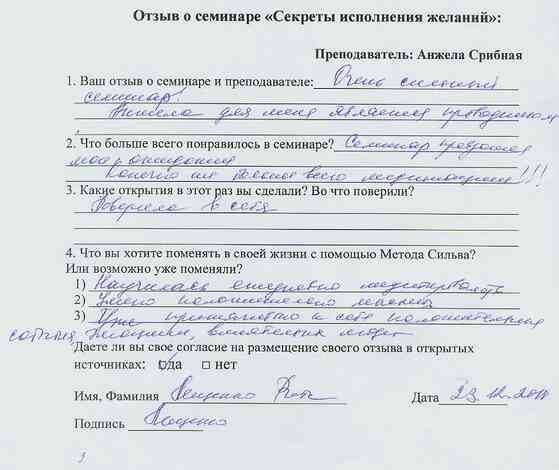 Отзыв о семинаре «Секреты исполнения желаний»:
Преподаватель: Анжела Срибная
1. Ваш отзыв о семинаре и преподавателе: Очень сильный
семинар!
Анжела для меня является проводником
2. Что больше всего понравилось в семинаре? Семинар превзошел
мои ожидания
конечно же больше всего медитации!!!
3. Какие открытия в этот раз вы сделали? Во что поверили?
Поверила в себя
4. Что вы хотите поменять в своей жизни с помощью Метода Сильва?
Или возможно уже поменяли?
1) Научилась ежедневно медитировать
2) положительного
3) притягиваю к себе положительные
события, эмоции, людей
Даете ли вы свое согласие на размещение своего отзыва в открытых
источниках: да нет
Имя, Фамилия Дата 23.12.
Подпись